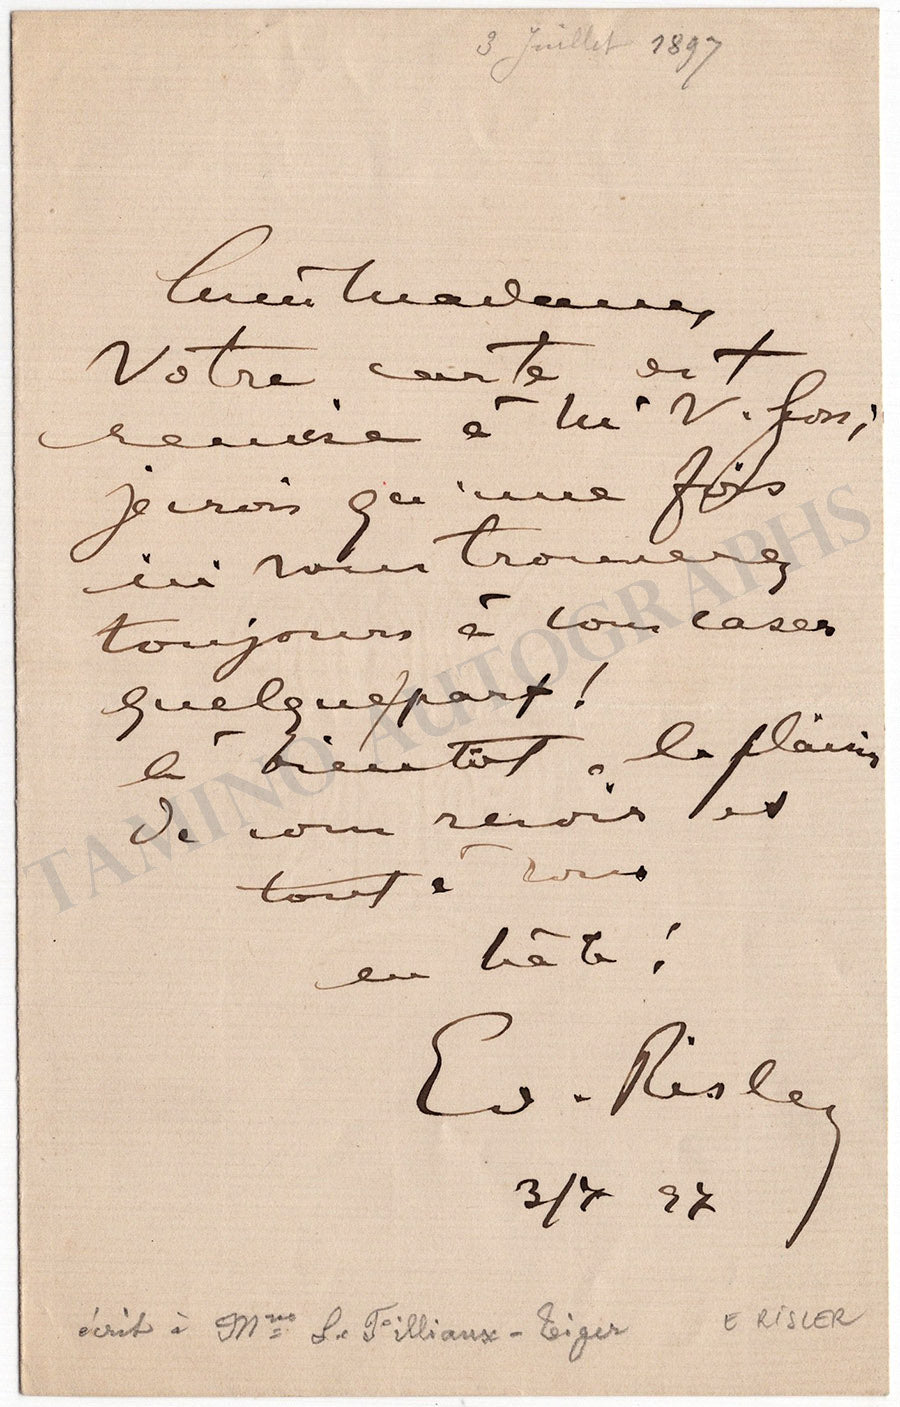 3 Juillet 1897
Chère Madame,
Votre carte est
remise à Mr V.
je crois qu'une fois
ici vous trouverez
toujours à vous caser
quelque part !
à bientôt le plaisir
de vous revoir et
tout à vous
en hâte !
Ed. Risler
3/7 97
écrit à Mme L. Filliaux-Tiger
E RISLER
TAMINO AUTOGRAPHS